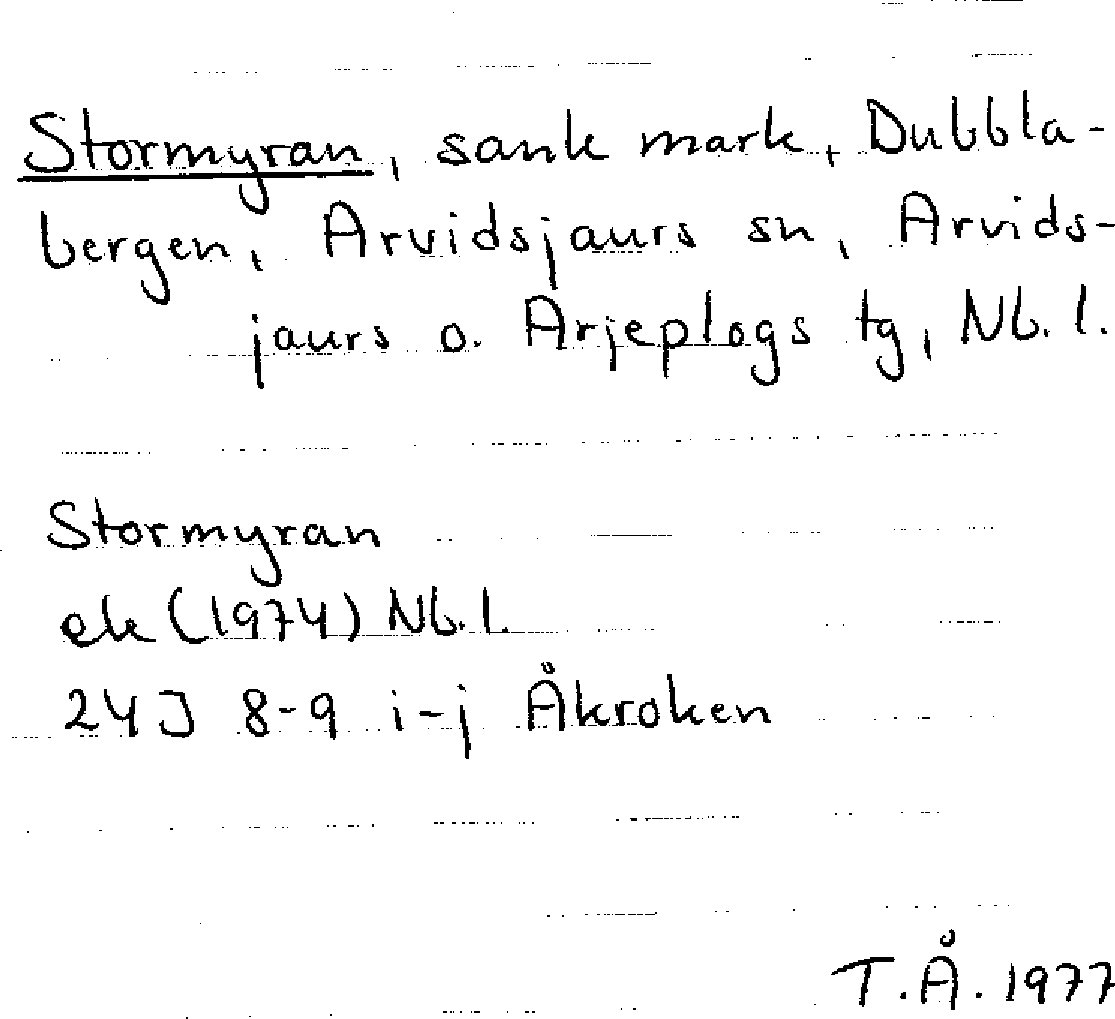 Stormyran, sank mark, Dubbla-
bergen, Arvidsjaurs sn, Arvids-
jaurs o. Arjeplogs tg, Nb. l.
Stormyran
ek (1974) Nb. l.
24J 8-9 i-j Åkroken
T.Å. 1977